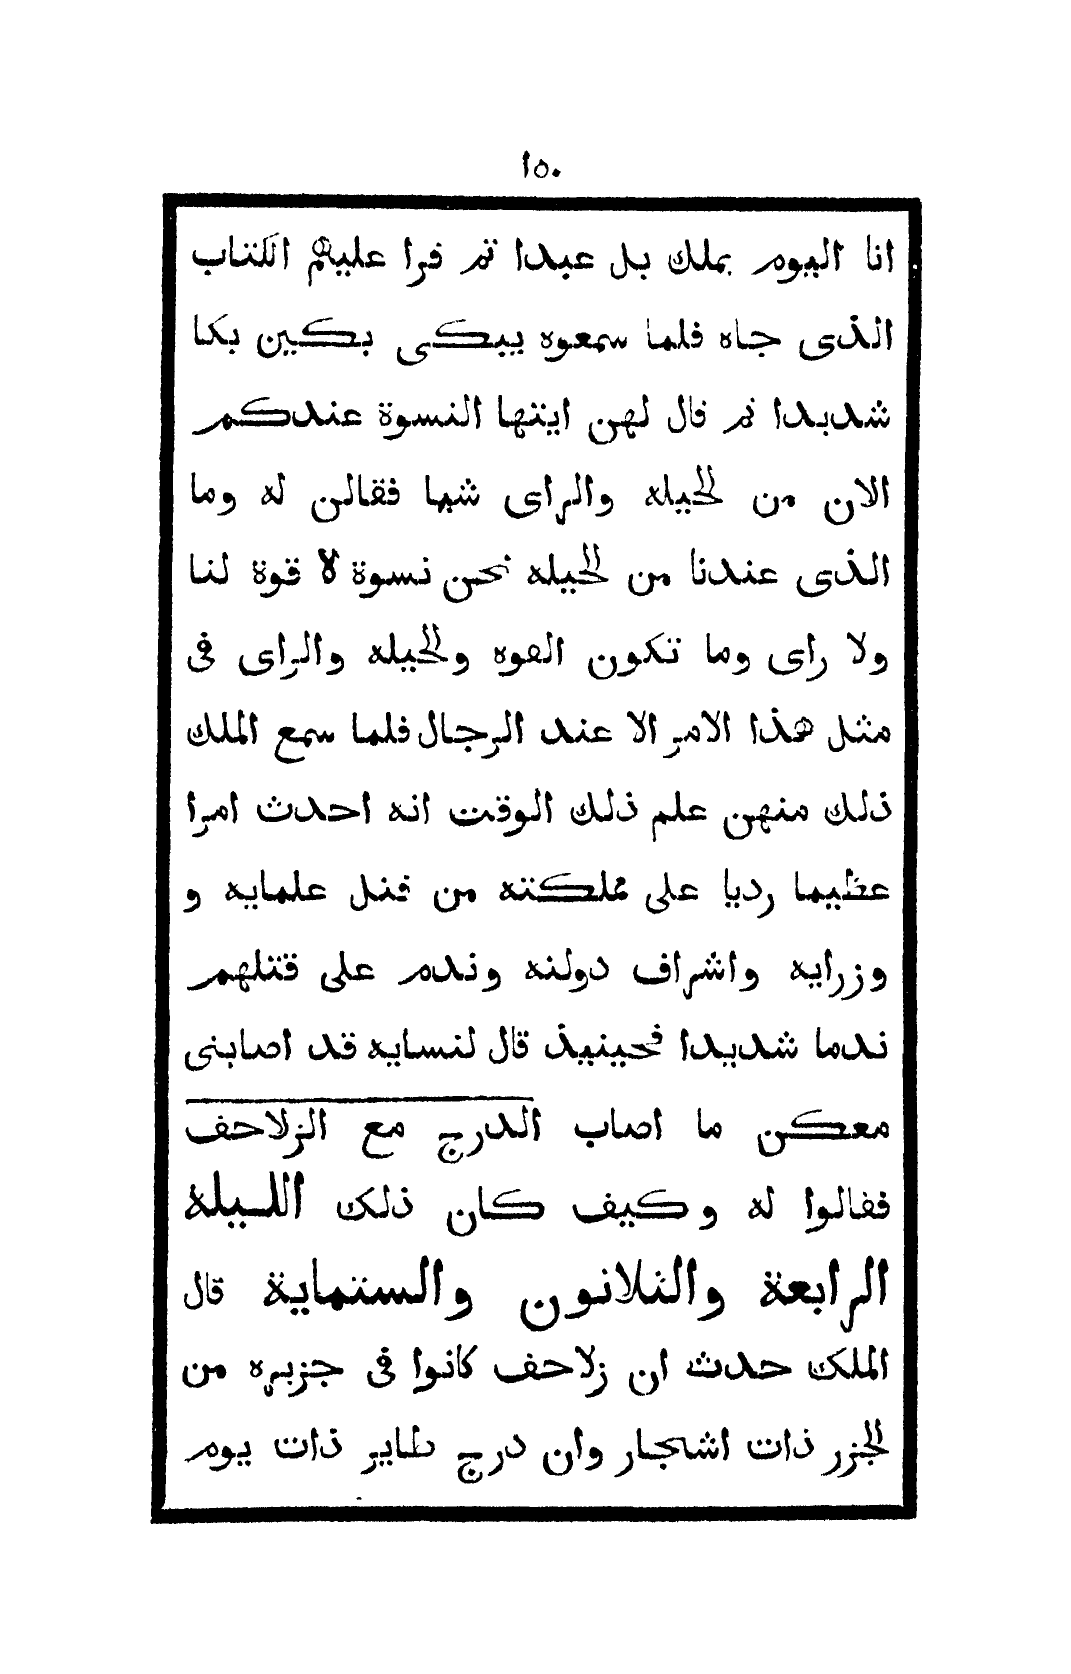 ١٥٠
انا اليوم بملك بل عبدا ثم قرا عليهم الكتاب
الذى جاه فلما سمعوه يببكى بكين بكا
شديدا ثم قال لهن ايتها النسوة عندكم
الان من الحيله والراى شيا فقالن له وما
الذى عندنا من الحيله نحن نسوة لا قوة لنا
ولا راى وما تكون القوه والحيله والراى فى
مثل هذا الامر الا عند الرجال فلما سمع الملك
ذلك منهن علم ذلك الوقت انه احدث امرا
عظيما رديا على مملكته من قتل علمايه و
وزرايه واشراف دولته وندم على قتلهم
ندما شديدا فحينيذ قال لنسايه قد اصابنى
معكن ما اصاب الدرج مع الزلاحف
فقالوا له وكيف كان ذلك الليلة
الرابعة والثلاثون والستماية قال
الملك حدث ان زلاحف كانوا فى جزيره من
الجزر ذات اشجار وان درج طاير ذات يوم